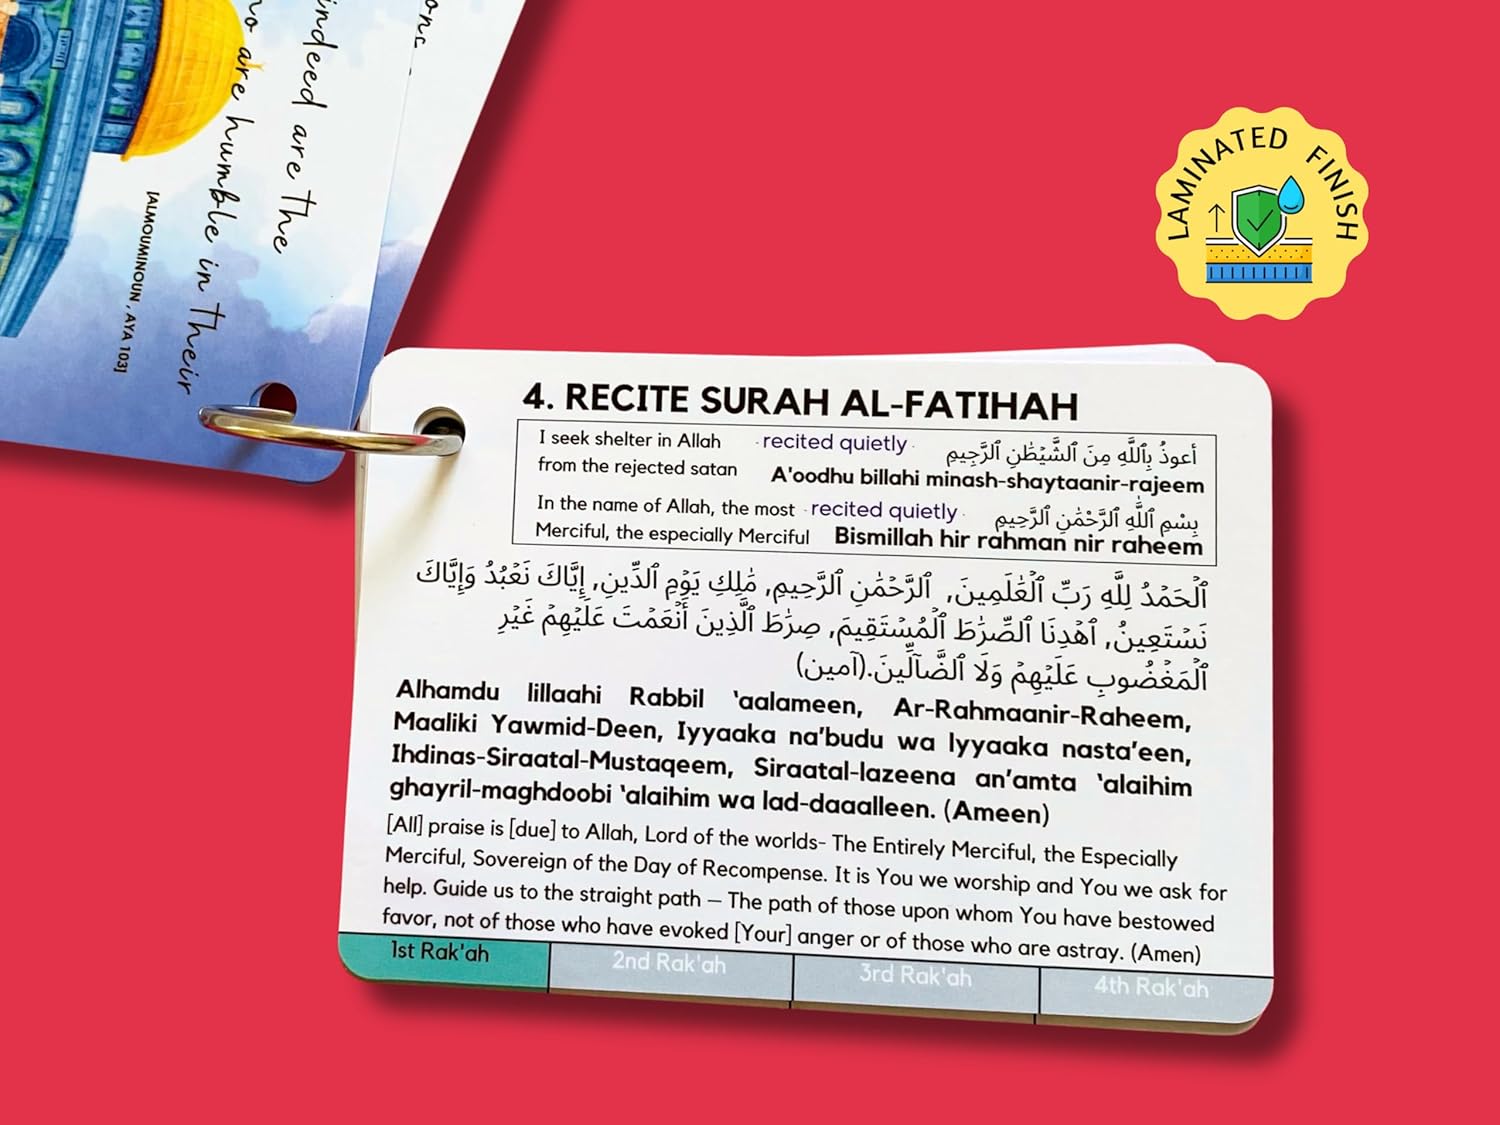 ons
indeed are the
who are humble in their
[ALMOUMINOUN , AYA 103]
LAMINATED FINISH
4. RECITE SURAH AL-FATIHAH
I seek shelter in Allah · recited quietly · أعوذُ بِٱللَّهِ مِنَ ٱلشَّيْطَٰنِ ٱلرَّجِيمِ
from the rejected satan A'oodhu billahi minash-shaytaanir-rajeem
In the name of Allah, the most · recited quietly · بِسْمِ ٱللَّهِ ٱلرَّحْمَٰنِ ٱلرَّحِيمِ
Merciful, the especially Merciful Bismillah hir rahman nir raheem
ٱلْحَمْدُ لِلَّهِ رَبِّ ٱلْعَٰلَمِينَ, ٱلرَّحْمَٰنِ ٱلرَّحِيمِ, مَٰلِكِ يَوْمِ ٱلدِّينِ, إِيَّاكَ نَعْبُدُ وَإِيَّاكَ
نَسْتَعِينُ, ٱهْدِنَا ٱلصِّرَٰطَ ٱلْمُسْتَقِيمَ, صِرَٰطَ ٱلَّذِينَ أَنْعَمْتَ عَلَيْهِمْ غَيْرِ
ٱلْمَغْضُوبِ عَلَيْهِمْ وَلَا ٱلضَّآلِّينَ.(آمين)
Alhamdu lillaahi Rabbil 'aalameen, Ar-Rahmaanir-Raheem,
Maaliki Yawmid-Deen, Iyyaaka na'budu wa lyyaaka nasta'een,
Ihdinas-Siraatal-Mustaqeem, Siraatal-lazeena an'amta 'alaihim
ghayril-maghdoobi 'alaihim wa lad-daaalleen. (Ameen)
[All] praise is [due] to Allah, Lord of the worlds- The Entirely Merciful, the Especially
Merciful, Sovereign of the Day of Recompense. It is You we worship and You we ask for
help. Guide us to the straight path – The path of those upon whom You have bestowed
favor, not of those who have evoked [Your] anger or of those who are astray. (Amen)
1st Rak'ah 2nd Rak'ah 3rd Rak'ah 4th Rak'ah